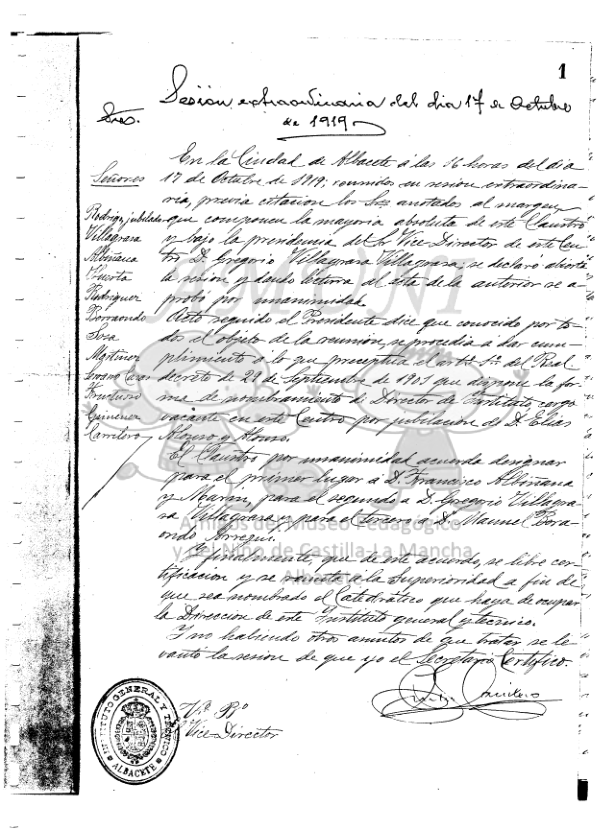 1
Sesión extraordinaria del dia 17 de Octubre
de 1919
Sres.
Señores
Rodrigo, jubilado
Villagrasa
Albiñana
Huerta
Rodriguez
Borraondo
Sosa
Martinez
Serrano
Fructuoso
Gimenez
Carrilero
En la Ciudad de Albacete á las 16 horas del dia
17 de Octubre de 1919, reunidos en sesion extraordina-
ria, previa citacion los Sres anotados al margen,
que componen la mayoria absoluta de este Claustro
y bajo la presidencia del Sr Vice Director de este Cen-
tro D. Gregorio Villagrasa Villagrasa, se declaró abierta
la sesion y dando lectura al acta de la anterior se a-
probó por unanimidad.
Acto seguido el Presidente dice que conocido por to-
dos el objeto de la reunión, se procedia a dar cum-
plimiento á lo que preceptua el artº 1º del Real
decreto de 29 de Septiembre de 1901 que dispone la for-
ma de nombramiento de Director de Instituto, cargo
vacante en este Centro por jubilacion de D. Elias
Alonso y Alonso.
El Claustro por unanimidad acuerda designar
para el primer lugar a D. Francisco Albiñana
y Marin, para el segundo a D. Gregorio Villagra-
sa Villagrasa y para el tercero á D. Manuel Bora-
ondo
Y finalmente, que de este acuerdo, se libre cer-
tificacion y se remita á la Superioridad a fin de
que sea nombrado el Catedrático que haya de ocupar
la Direccion de este Instituto general y técnico.
Y no habiendo otros asuntos de que tratar se le-
vantó la sesion de que yo el Secretario Certifico.
Vº Bº
Vice-Director
INSTITUTO GENERAL Y TÉCNICO
ALBACETE
AMUNI
Amigos del Museo Pedagógico
y del Niño de Castilla-La Mancha